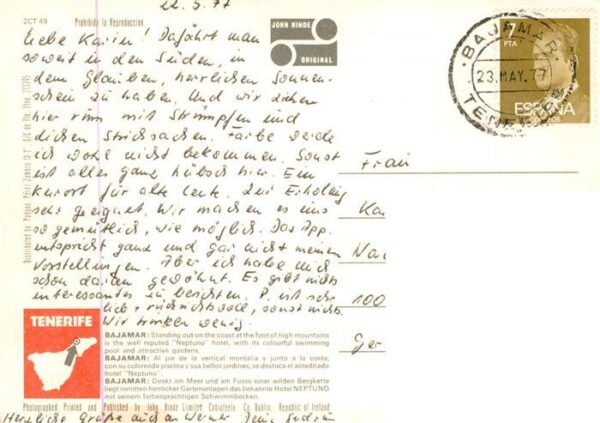 22.5.77
2CT 49 Prohibida la Reproduccion
JOHN HINDE
ORIGINAL
7
PTA
ESPAÑA
BAJAMAR
23.MAY.77
TENERIFE
Liebe Karin! Da fährt man
soweit in den Süden, in
dem Glauben, herrlichen Sonnen-
schein zu haben. Und wir ziehen
hier rum mit Strümpfen und
dicken Stricksachen. Farbe werde
ich wohl nicht bekommen. Sonst
ist alles ganz hübsch hier. Ein
Kurort für alte Leute. Zur Erholung
sehr geeignet. Wir machen es uns
so gemütlich, wie möglich. Das App.
entspricht ganz und gar nicht meinen
Vorstellungen. Aber ich habe mich
schon daran gewöhnt. Es gibt nichts
interessantes zu berichten. P. ist sehr
lieb + rücksichtsvoll, sonst nichts.
Wir trinken wenig.
Frau
Ka
Na
100
Ger
TENERIFE
BAJAMAR: Standing out on the coast at the foot of high mountains
is the well reputed "Neptuno" hotel, with its colourful swimming
pool and attractive gardens.
BAJAMAR: Al pie de la vertical montaña y junto a la costa,
con su coloreada piscina y sus bellos jardines, se destaca el acreditado
hotel "Neptuno".
BAJAMAR: Direkt am Meer und am Fusse einer wilden Bergkette
liegt inmitten herrlicher Gartenanlagen das bekannte Hotel NEPTUNO
mit seinem farbenprächtigen Schwimmbecken.
Photographed, Printed and Published by John Hinde Limited Cabinteely, Co Dublin, Republic of Ireland
Herzliche Grüße auch an Werner Deine